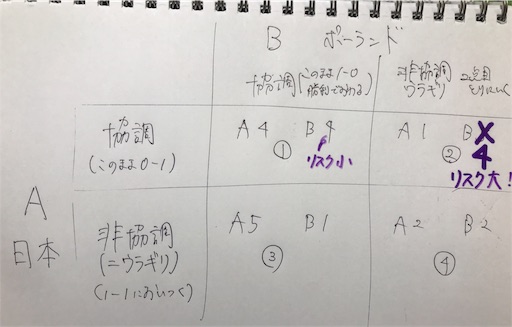 B ポーランド
協調(このまま1-0
勝利でおわる)
非協調
ウラギリ
2点目
とりにいく
協調
(このまま0-1)
A4 B4
①
リスク小
A1 B
4
②
リスク大!
A
日本
非協調
(=ウラギリ)
(1-1においつく)
A5 B1
③
A2 B2
④